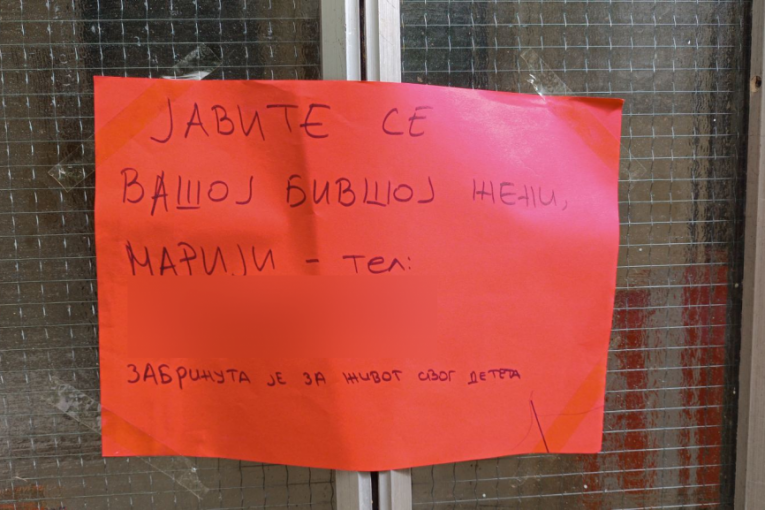 ЈАВИТЕ СЕ
ВАШОЈ БИВШОЈ ЖЕНИ,
МАРИЈИ - тел:
ЗАБРИНУТА ЈЕ ЗА ЖИВОТ СВОГ ДЕТЕТА